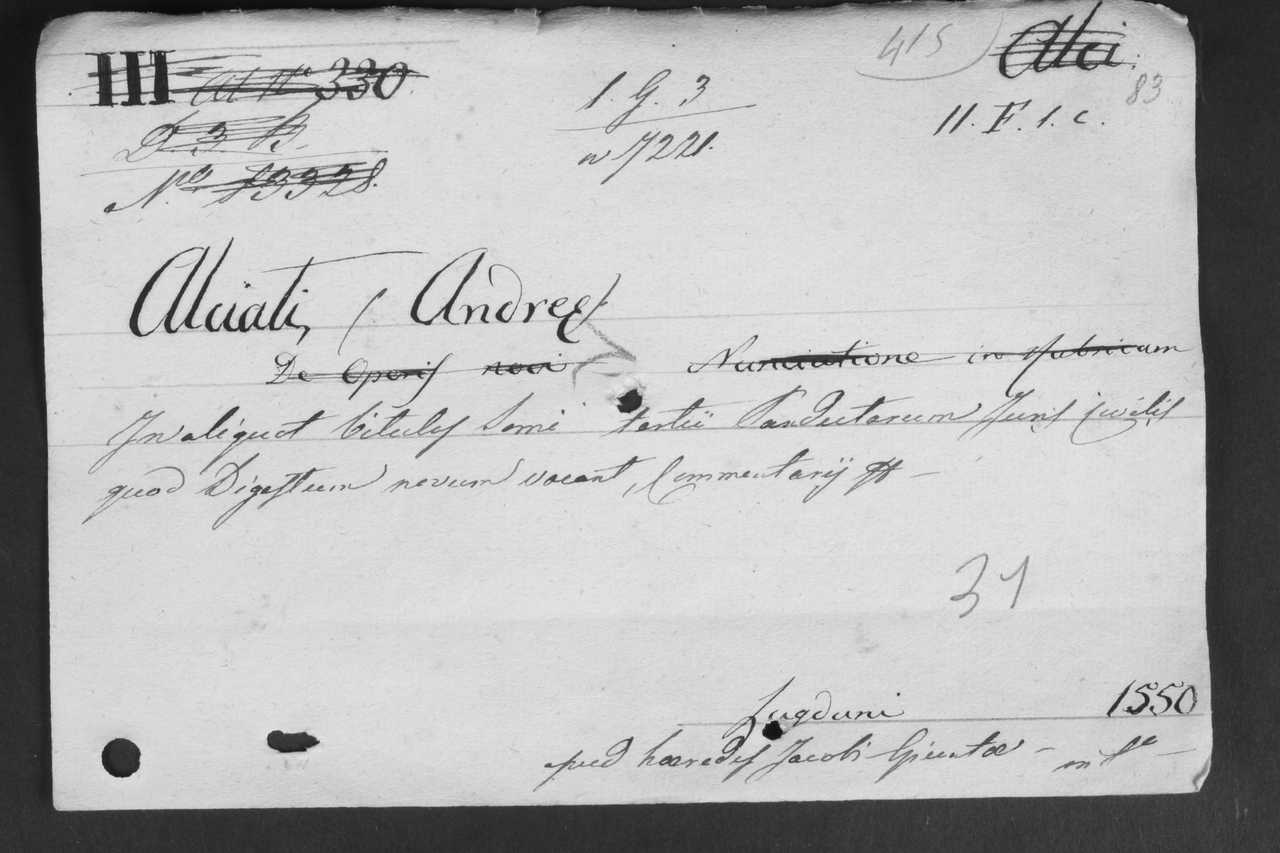 415 Alci.
III Cat Nº 330.
1. G. 3 83
D. 3 B. 11. F. 1. c.
n 7221.
Nº 13328.
Alciati, (Andree)
De Operis novi Nunciatione in rubricam
In aliquot titulos tomi tertii Pandectarum Juris Civilis
quod Digestum novum vocant, Commentarij
31
Lugduni 1550
apud haeredes Jacobi Giuntae – in fº –